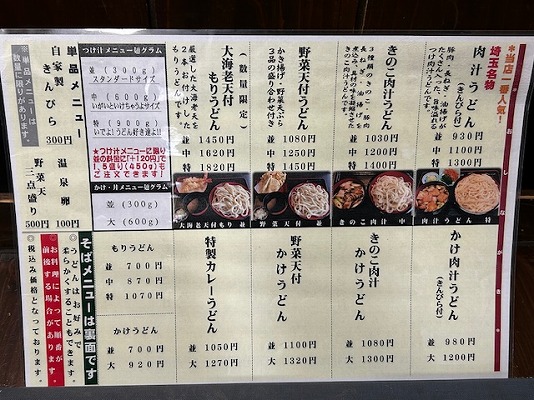 お し な が き
*当店一番人気!
埼玉名物
肉汁うどん
(きんぴら付)
豚肉・長ねぎ・油揚げが
たくさん入った、旨味溢れる
つけ肉汁うどんです。
並 930円
中 1100円
特 1300円
きのこ肉汁うどん
3種類のきのこ・豚肉
長ねぎ・油揚げを
きのこ肉汁うどんです。
並 1030円
中 1200円
特 1400円
野菜天付肉汁うどん
かき揚げ・野菜天ぷら
3品の盛り合わせ付き
並 1080円
中 1250円
特 1450円
(数量限定)
大海老天付
もりうどん
厳選した大海老天を
2本お付けした
もりうどんです。
並 1450円
中 1620円
特 1820円
つけ汁メニュー麺グラム
並 (300g)
スタンダードサイズ
中 (600g)
いがいといけちゃうよサイズ
特 (900g)
いでよ!うどん好き達よ!!
★つけ汁メニューに限り
並の料金に「+120円」で
1.5盛り(450g)も
ご注文できます!
かけ・丼メニュー麺グラム
並 (300g)
大 (600g)
単品メニュー
自家製
きんぴら 300円
温泉卵 100円
野菜天
三点盛り 500円
※単品メニューは
数量に限りがあります。
肉汁うどん 特
きのこ肉汁 中
野菜天付 並
大海老天付もり 並
かけ肉汁うどん
(きんぴら付)
並 980円
大 1200円
きのこ肉汁
かけうどん
並 1080円
大 1300円
野菜天付
かけうどん
並 1100円
大 1320円
特製カレーうどん
並 1050円
大 1270円
もりうどん
並 700円
中 870円
特 1070円
かけうどん
並 700円
大 920円
そばメニューは裏面です
◎うどんはお好みで
柔らかくすることもできます。
◎お料理によって順番が
前後する場合があります。
◎税込み価格となっております。